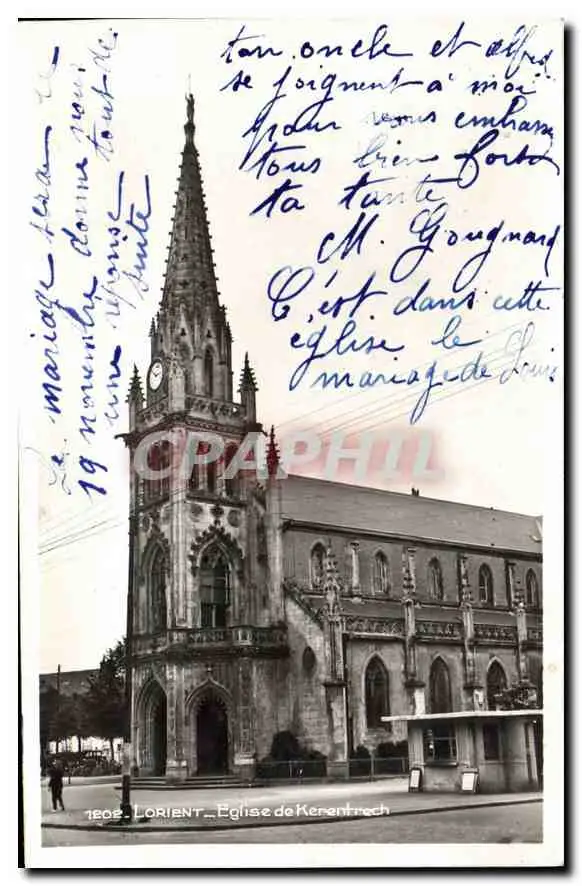 ton oncle et alfred
se joignent à moi
pour vous embrasser
tous bien fort
ta tante
M. Gougnard
C'est dans cette
église le
mariage de Louis
Le mariage sera le
19 novembre donne moi
une réponse tout de
suite
CARTAPHIL
1202_LORIENT_Eglise de Kerentrech